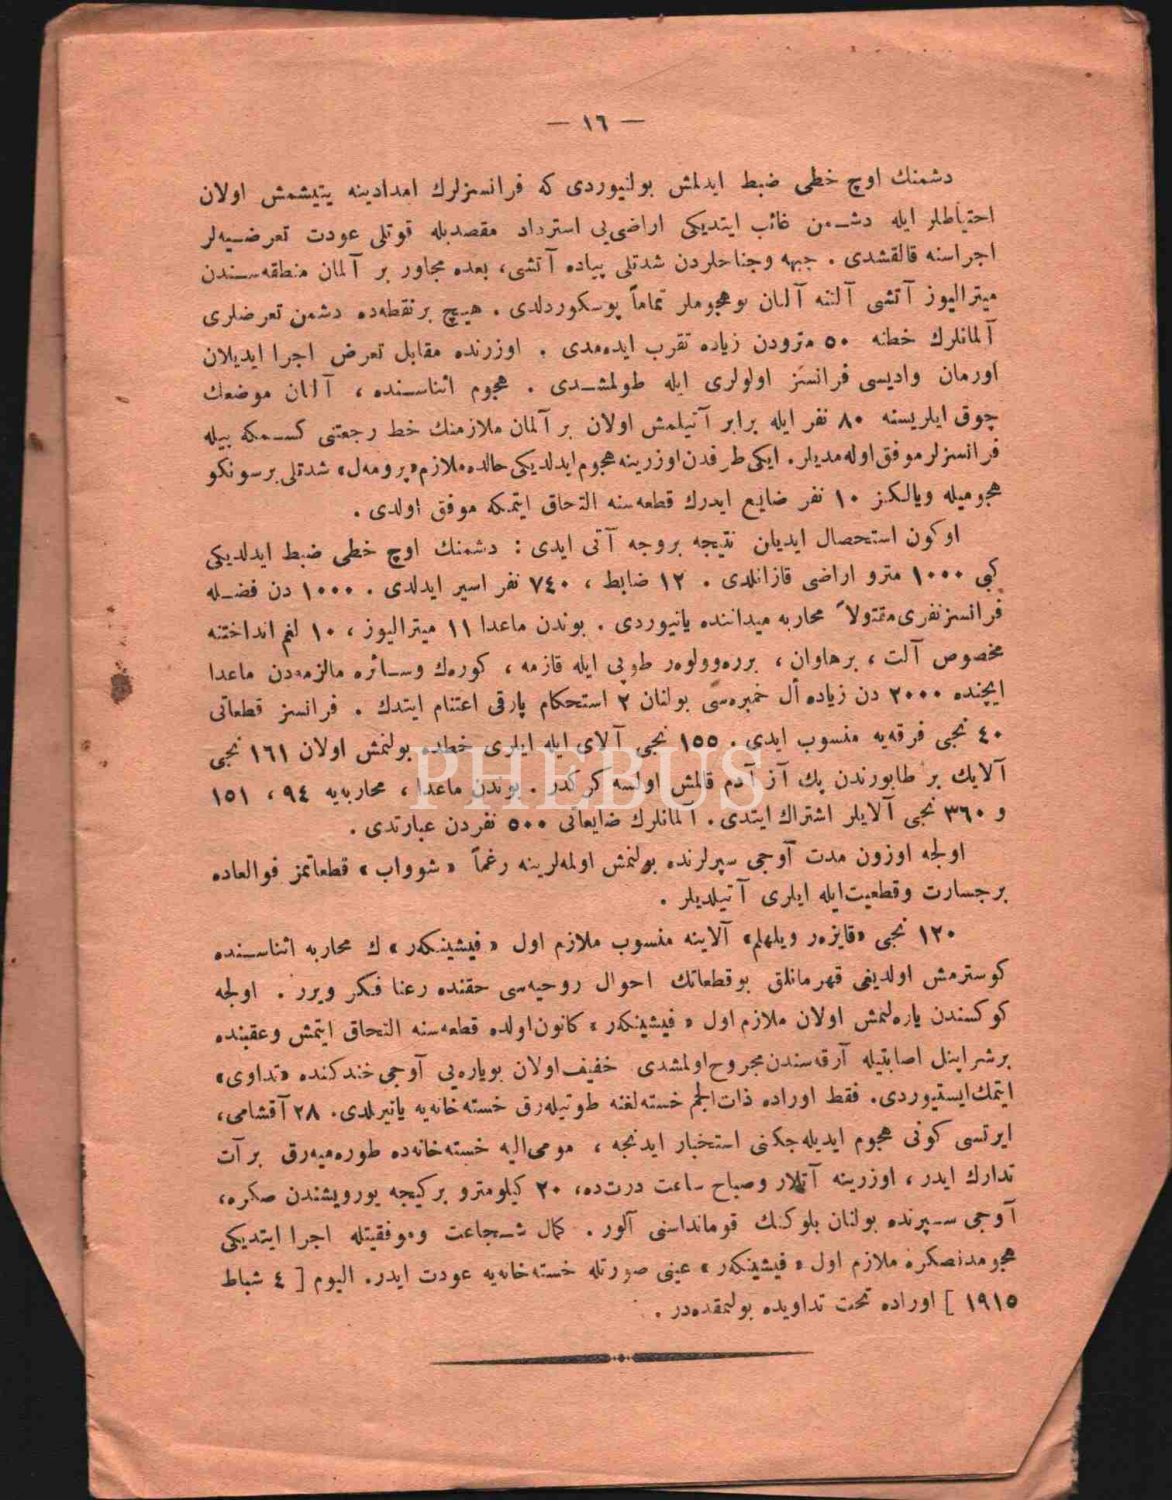 — ١٦ —
دشمنك اوچ خطى ضبط ايدلمش بولنيوردى كه فرانسزلرك امدادينه يتيشمش اولان
احتياطلر ايله دشمن غائب ايتديكى اراضى‌يى استرداد مقصديله قوتلى عودت تعرضيه‌لر
اجراسنه قالقشدى . جبهه وجناحلردن شدتلى پياده آتشى، بعده مجاور بر آلمان منطقه‌سندن
ميتراليوز آتشى آلتنه آلنان بوهجوملر تماماً پوسكوردلدى . هيچ برنقطه‌ده دشمن تعرضلرى
آلمانلرك خطنه ٥٠ مترودن زياده تقرب ايده‌مدى . اوزرنده مقابل تعرض اجرا ايديلان
اورمان واديسى فرانسز اولولرى ايله طولمشدى . هجوم اثناسنده ، آلمان موضعك
چوق ايلريسنه ٨٠ نفر ايله برابر آتيلمش اولان بر آلمان ملازمنك خط رجعتنى كسمكه بيله
فرانسزلر موفق اوله‌مديلر. ايكى طرفدن اوزرينه هجوم ايدلديكى حالده ملازم «پرومه‌ل» شدتلى برسونكو
هجوميله ويالكز ١٠ نفر ضايع ايدرك قطعه‌سنه التحاق ايتمكه موفق اولدى .
اوكون استحصال ايديان نتيجه بروجه آتى ايدى : دشمنك اوچ خطى ضبط ايدلديكى
كبى ١٠٠٠ مترو اراضى قازانلدى . ١٢ ضابط ، ٧٤٠ نفر اسير ايدلدى . ١٠٠٠ دن فضله
فرانسزنفرى مقتولاً محاربه ميداننده ياتيوردى . بوندن ماعدا ١١ ميتراليوز ، ١٠ لغم انداختنه
مخصوص آلت ، برهاوان ، بررەوولوەر طوپى ايله قازمه ، كورك وسائره مالزمه‌دن ماعدا
ايچنده ٢٠٠٠ دن زياده ال خمبره‌سى بولنان ٢ استحكام پارقى اغتنام ايتدك . فرانسز قطعاتى
٤٠ نجى فرقه‌يه منسوب ايدى . ١٥٥ نجى آلاى ايله ايلرى خطده بولنمش اولان ١٦١ نجى
آلايك بر طابورندن پك آز آدم قالمش اولسه كركدر . بوندن ماعدا ، محاربه‌يه ٩٤ ، ١٥١
و ٣٦٠ نجى آلايلر اشتراك ايتدى . آلمانلرك ضايعاتى ٥٠٠ نفردن عبارتدى .
اولجه اوزون مدت آوجى سپرلرنده بولنمش اولمه‌لرينه رغماً « شوواب » قطعاتمز فوالعاده
برجسارت وقطعيت‌ايله ايلرى آتيلديلر .
١٢٠ نجى «قايزەر ويلهلم» آلاينه منسوب ملازم اول « فيشينكەر » ك محاربه اثناسنده
كوسترمش اولديغى قهرمانلق بوقطعاتك احوال روحيه‌سى حقنده رعنا فكر ويرر . اولجه
كوكسندن ياره‌لنمش اولان ملازم اول « فيشينكەر » كانون‌اولده قطعه‌سنه التحاق ايتمش وعقبنده
برشراپنل اصابتيله آرقه‌سندن مجروح اولمشدى خفيف اولان بوياره‌يى آوجى خندكنده «تداوى»
ايتمك‌ايستيوردى. فقط اوراده ذات‌الجنب خسته‌لغنه طوتيله‌رق خسته‌خانه‌يه ياتيرلدى. ٢٨ آقشامى،
ايرتسى كونى هجوم ايديله‌جكنى استخبار ايدنجه ، مومى‌اليه خسته‌خانه‌ده طوره‌ميه‌رق بر آت
تدارك ايدر ، اوزرينه آتلار وصباح ساعت درت‌ده، ٢٠ كيلومترو بركيجه يورويشندن صكره،
آوجى سپرنده بولنان بلوكنك قومانداسنى آلور . كمال شجاعت وموفقيتله اجرا ايتديكى
هجومدنصكره ملازم اول « فيشينكەر » عينى صورتله خسته‌خانه‌يه عودت ايدر. اليوم [ ٤ شباط
١٩١٥ ] اوراده تحت تداويده بولنمقده‌در .
PHEBUS